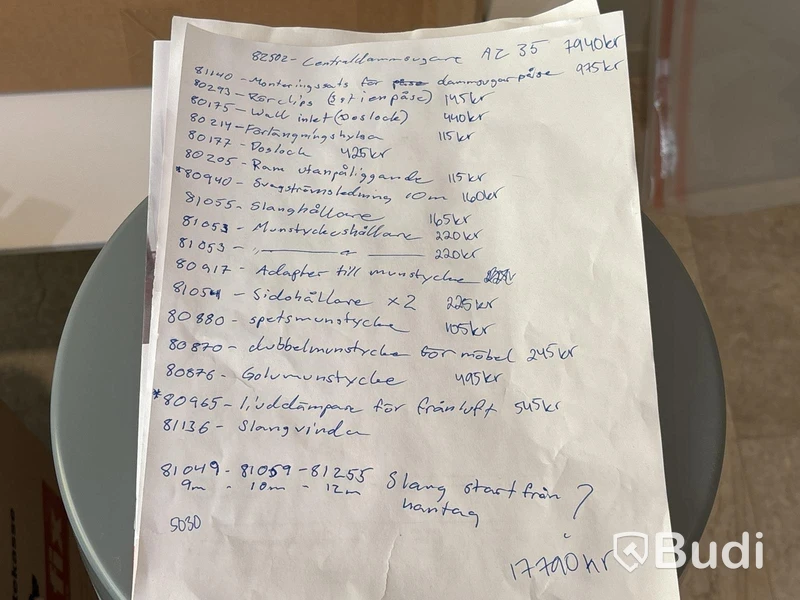 82502 - Centraldammsugare AZ 35 7940kr
81140 - Monteringssats för dammsugarpåse 975kr
80293 - Rörclips (3st i en påse) 145kr
80175 - Wall inlet (Doslock) 440kr
80214 - Förlängningshylsa 115kr
80177 - Doslock 425kr
80205 - Ram utanpåliggande 115kr
*80940 - Svagströmsledning 10m 160kr
81055 - Slanghållare 165kr
81053 - Munstyckeshållare 220kr
81053 - 〃 220kr
80917 - Adapter till munstycke
81054 - Sidohållare x2 225kr
80880 - spetsmunstycke 105kr
80870 - dubbelmunstycke för möbel 245kr
80876 - Golvmunstycke 495kr
*80965 - Ljuddämpare för frånluft 545kr
81136 - Slangvinda
81049 - 81059 - 81255 Slang start från
9m - 10m - 12m hantag ?
5030
17790kr
Budi